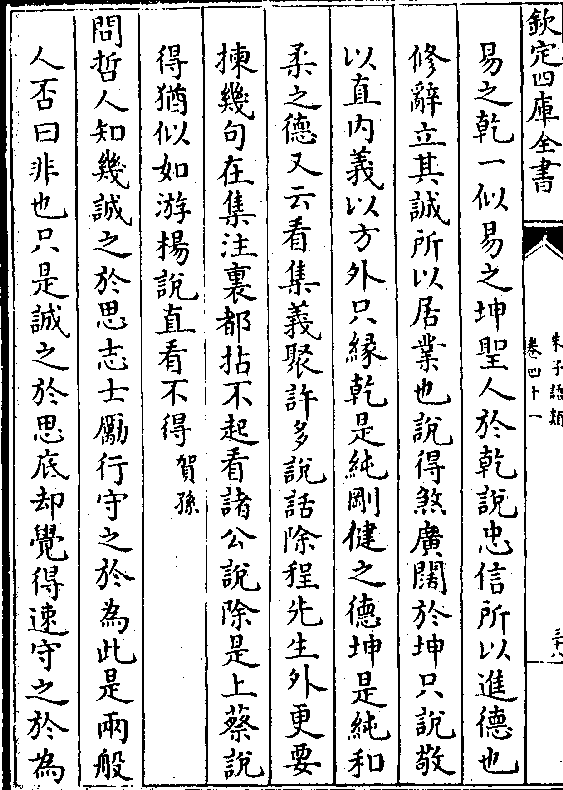 欽定四庫全書
朱子語類
卷四十一
易之乾一似易之坤聖人於乾說忠信所以進德也
修辭立其誠所以居業也說得煞廣闊於坤只說敬
以直内義以方外只緣乾是純剛健之德坤是純和
柔之德又云看集義聚許多說話除程先生外更要
揀幾句在集注裏都拈不起看諸公說除是上蔡說
得猶似如游楊說直看不得賀孫
問哲人知幾誠之於思志士勵行守之於為此是兩般
人否曰非也只是誠之於思底却覺得速守之於為